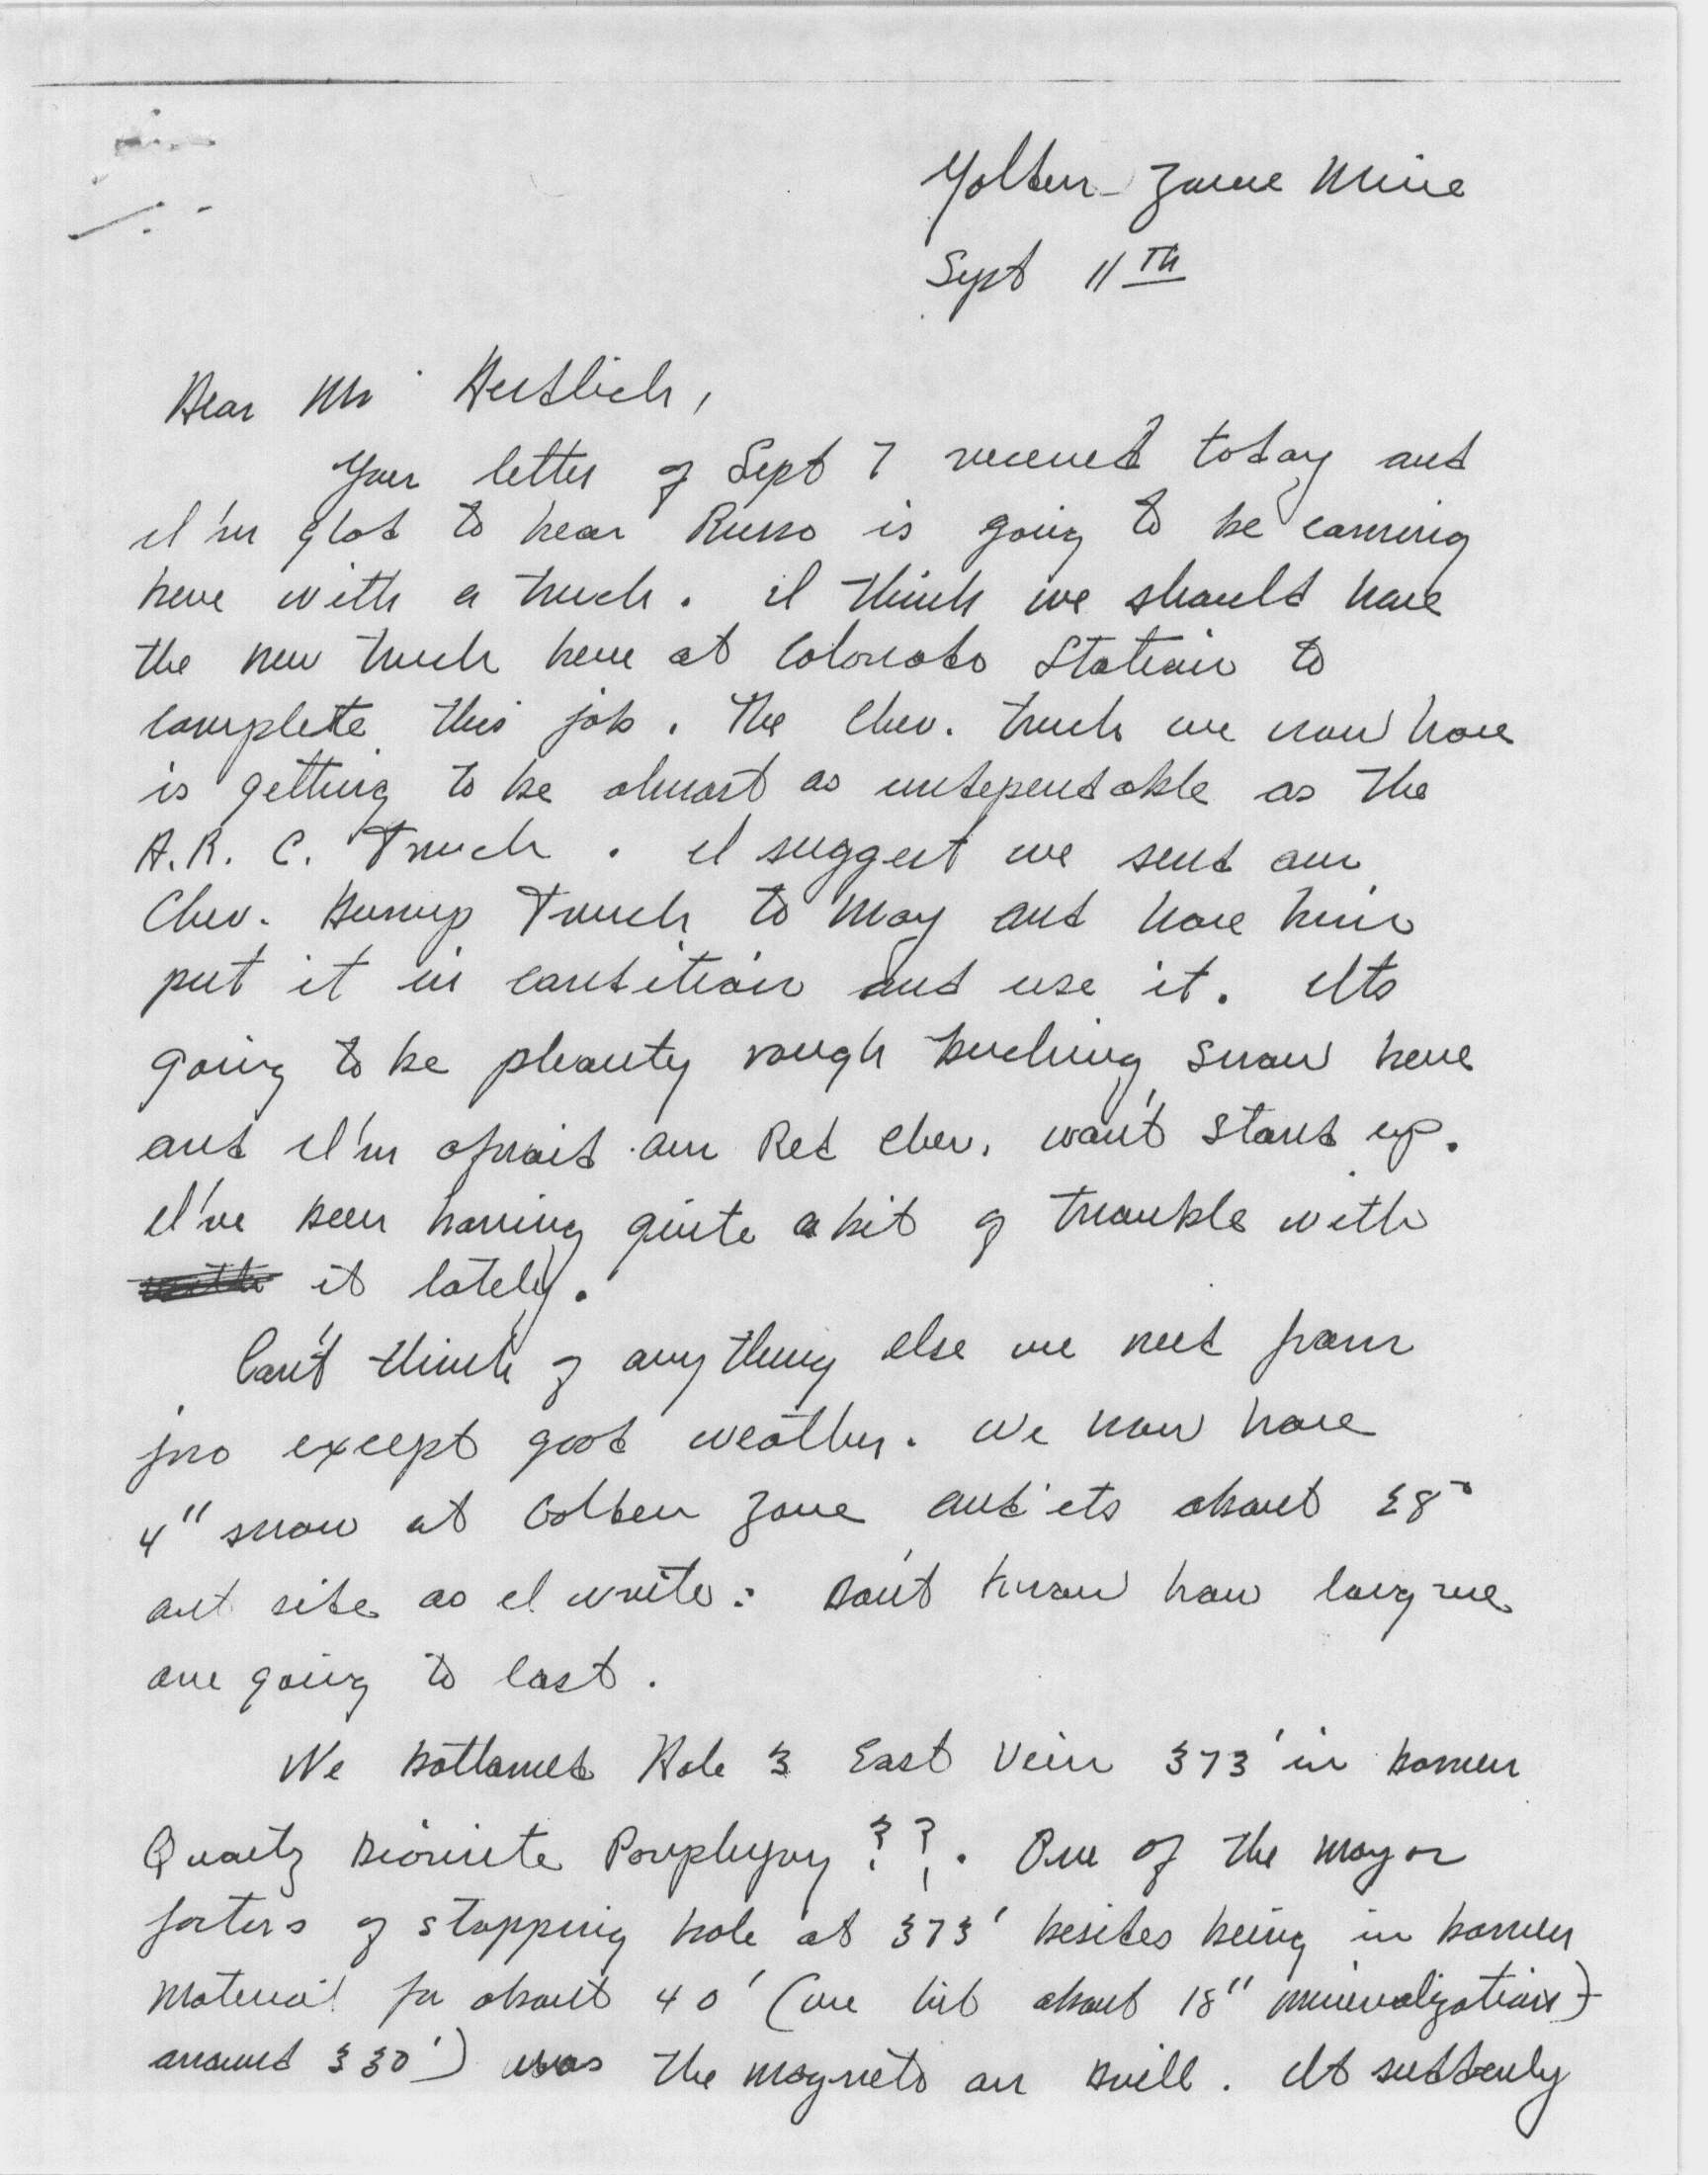 Golden Zone Mine
Sept 11th
Dear Mr Herdlick,
Your letter of Sept 7 received today and
I'm glad to hear Russo is going to be comming
here with a truck. I think we should have
the new truck here at Colorado Station to
complete this job. The Chev. truck we now have
is getting to be almost as undependable as the
A.R.C. Truck. I suggest we send our
Chev. Dump Truck to May and have him
put it in condition and use it. Its
going to be pleanty rough bucking snow here
and I'm afraid our Red Chev. won't stand up.
I've been having quite a bit of trouble with
it lately.
Can't think of any thing else we need from
jno except good weather. We now have
4" snow at Golden Zone and its about 28°
out side as I write. Don't know how long we
are going to last.
We bottomed Hole 3 East Vein 373' in barren
Quartz Diorite Porphyry ??. One of the mayor
factors of stopping hole at 373' besides being in barren
material for about 40' (we hit about 18" mineralization
around 330') was the magneto on drill. It suddenly